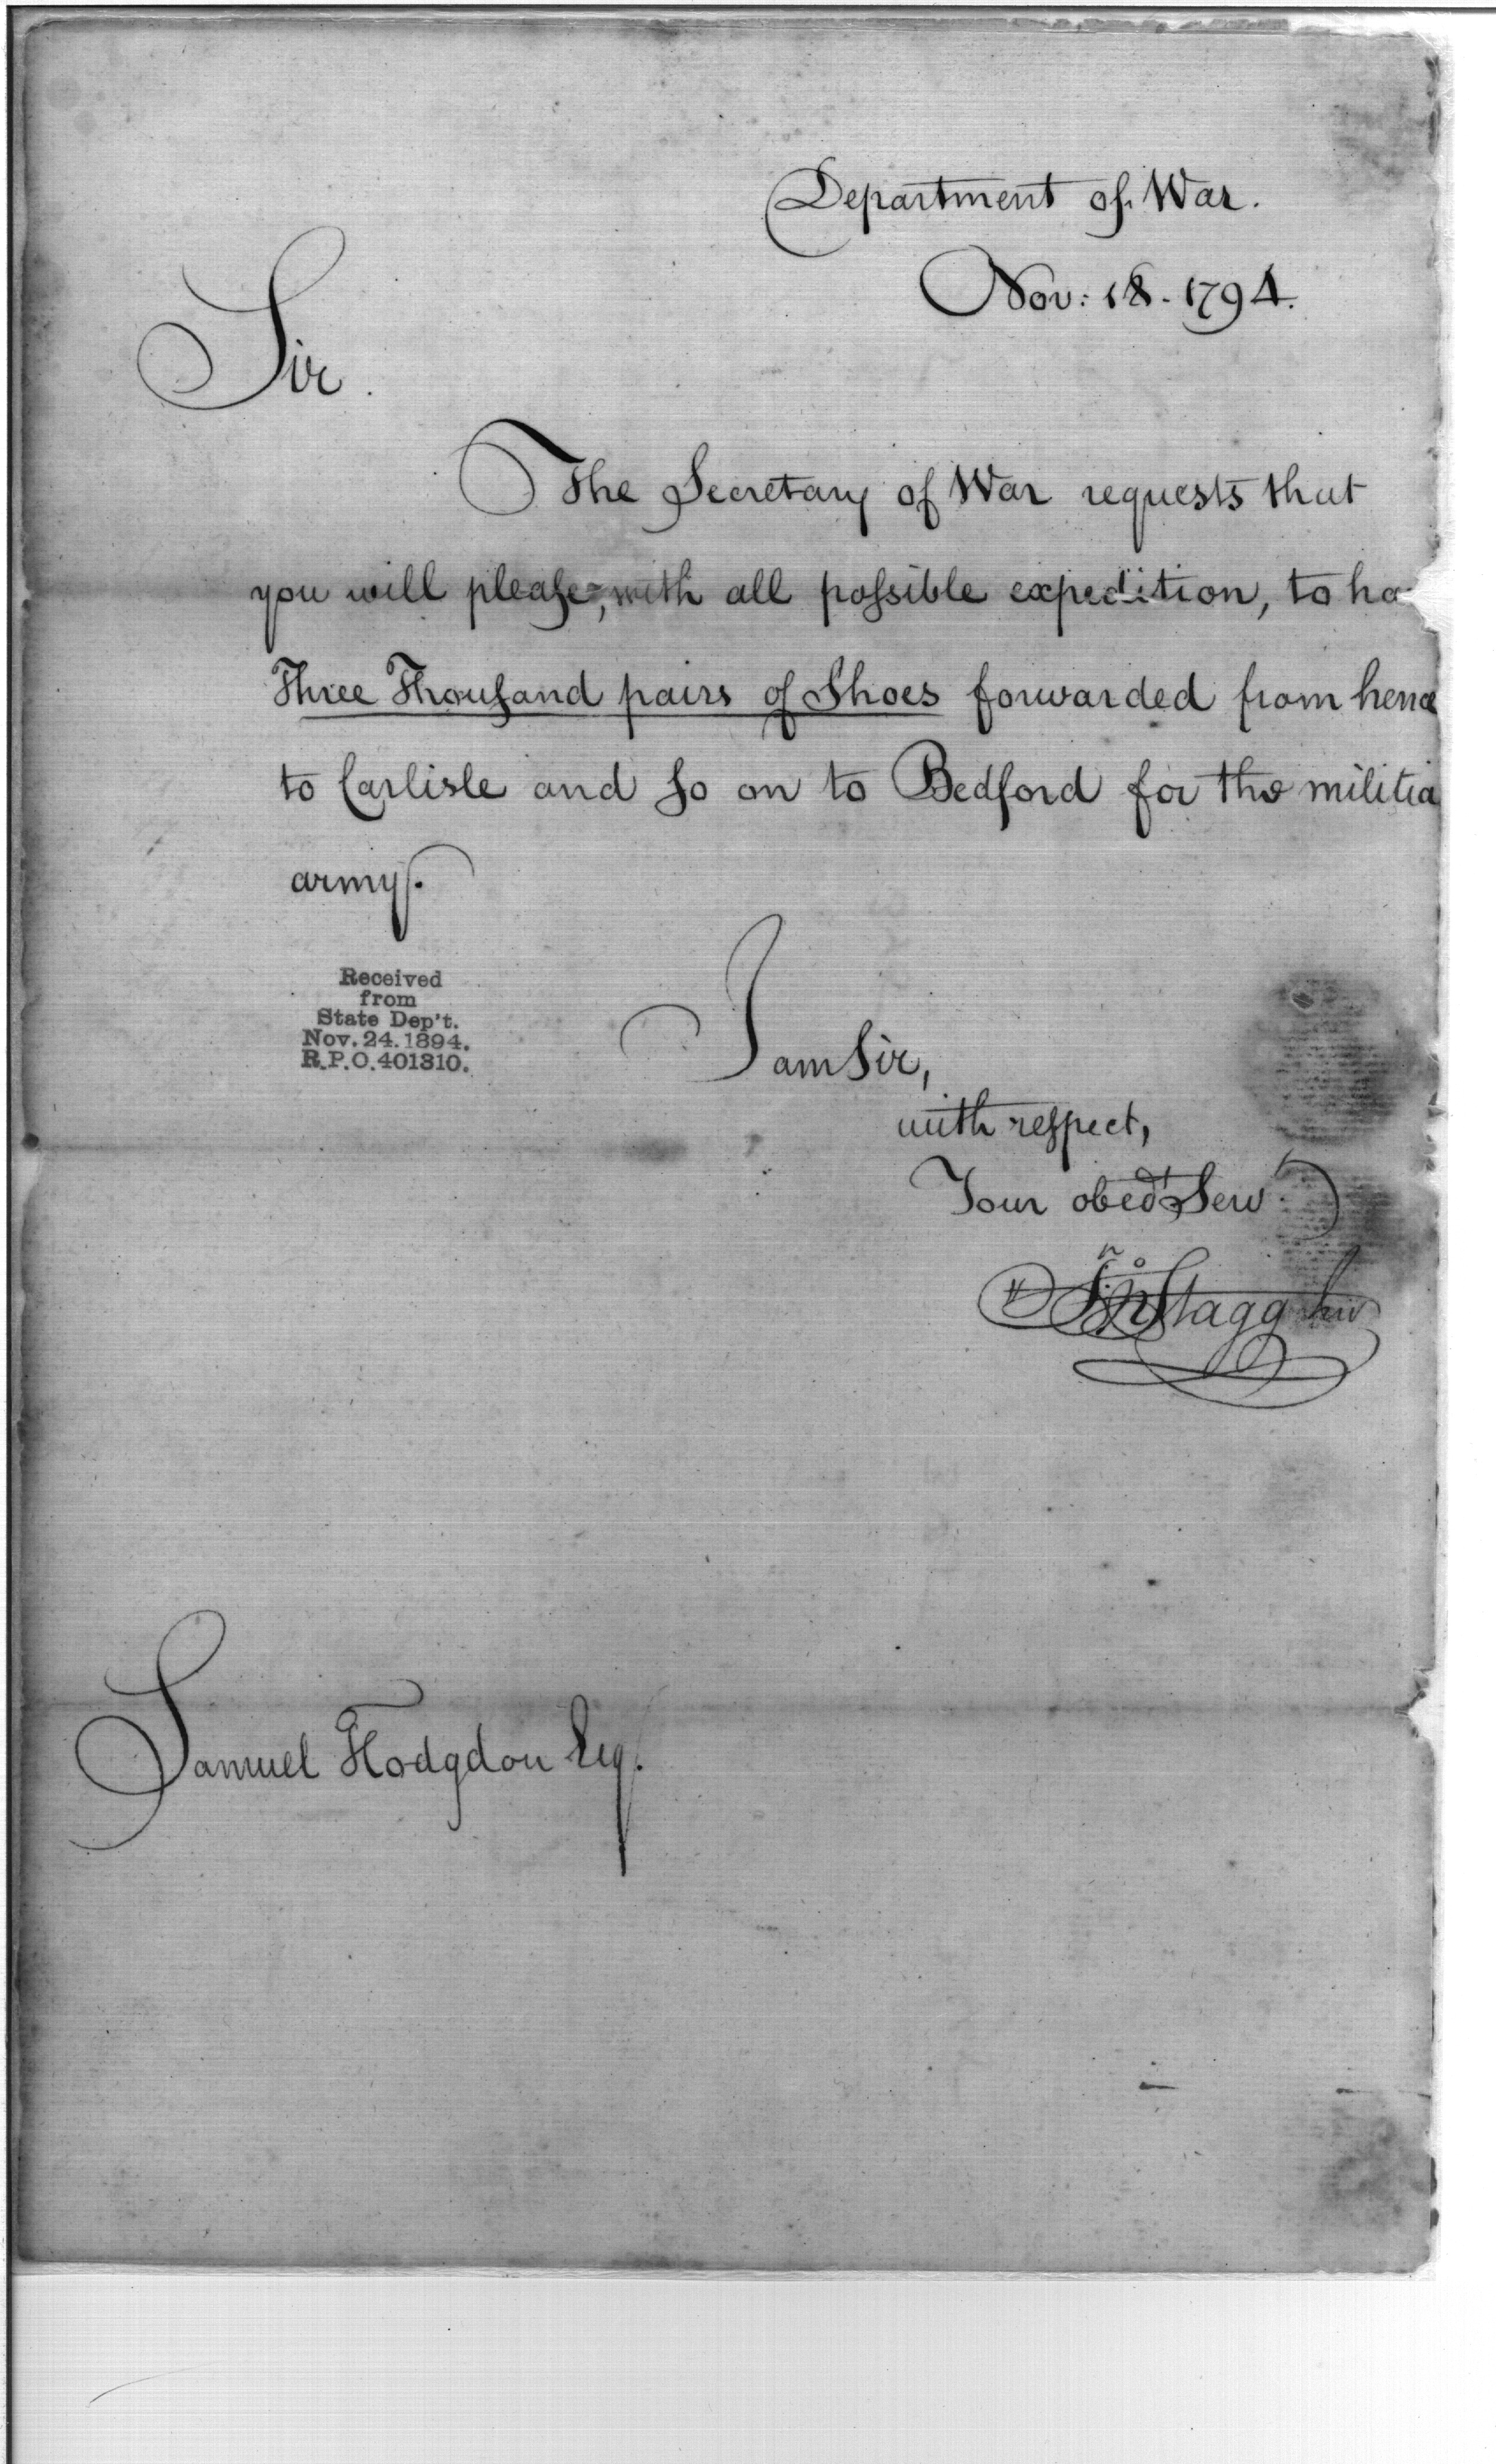 Department of War.
Nov: 18. 1794.
Sir.
The Secretary of War requests that
you will please, with all possible expedition, to ha
Three Thousand pairs of Shoes forwarded from hence
to Carlisle and so on to Bedford for the militia
army.
Received
from
State Dep't.
Nov. 24. 1894.
R.P.O. 401310.
I am Sir,
with respect,
Your obedt Servt.
Jno Stagg Junr
Samuel Hodgdon Esq.